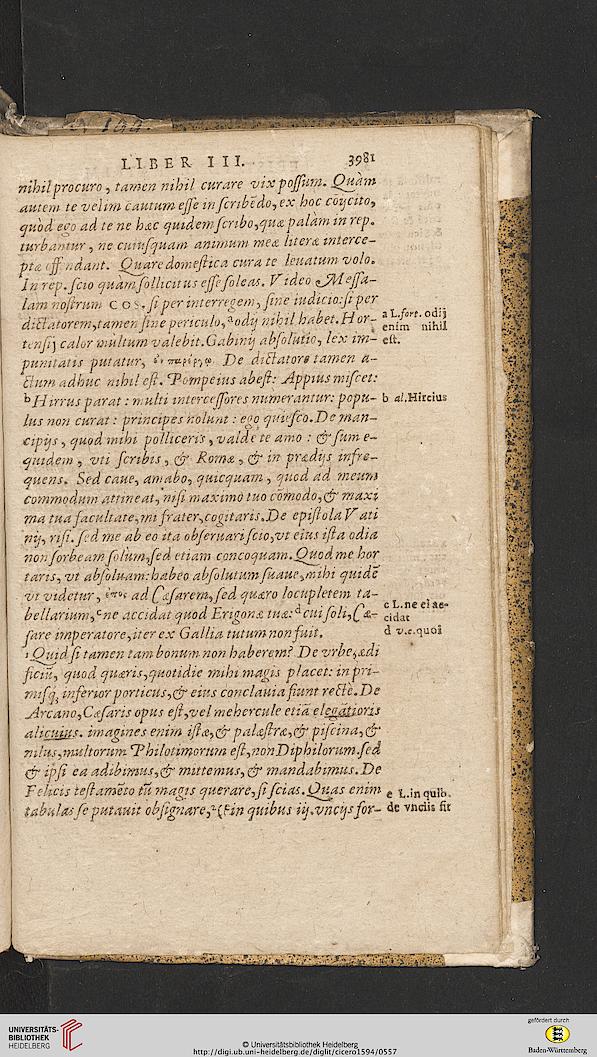 LIBER III. 3981
nihil procuro, tamen nihil curare vix possum. Quàm
autem te velim cautum esse in scribẽdo, ex hoc coijcito,
quòd ego ad te ne hæc quidem scribo, quæ palàm in rep.
turbantur, ne cuiusquam animum meæ literæ interce-
ptæ offendant. Quare domestica cura te leuatum volo.
In rep. scio quàm sollicitus esse soleas. Video Messa-
lam nostrum COS. si per interregem, sine iudicio: si per
dictatorem, tamen sine periculo, ᵃodij nihil habet. Hor-
tensij calor multum valebit. Gabinij absolutio, lex im-
punitatis putatur, ἐν παρέργῳ. De dictatore tamen a-
ctum adhuc nihil est. Pompeius abest: Appius miscet:
ᵇHirrus parat: multi intercessores numerantur: popu-
lus non curat: principes nolunt: ego quiesco. De man-
cipijs, quod mihi polliceris, valde te amo: & sum e-
quidem, vti scribis, & Romæ, & in prædijs infre-
quens. Sed caue, amabo, quicquam, quod ad meum
commodum attineat, nisi maximo tuo cõmodo, & maxi
ma tua facultate, mi frater, cogitaris. De epistola Vati
nij, risi. sed me ab eo ita obseruari scio, vt eius ista odia
non sorbeam solùm, sed etiam concoquam. Quod me hor
taris, vt absoluam: habeo absolutum suaue, mihi quidẽ
vt videtur, ἔπος ad Cæsarem, sed quæro locupletem ta-
bellarium, ᶜne accidat quod Erigonæ tuæ: ᵈcui soli, Cæ-
sare imperatore, iter ex Gallia tutum non fuit.
Quid si tamen tam bonum non haberem? De vrbe, ædi
ficiũ, quod quæris, quotidie mihi magis placet: in pri-
misq́, inferior porticus, & eius conclauia fiunt rectè. De
Arcano, Cæsaris opus est, vel mehercule etiã elegãtioris
alicuius. imagines enim istæ, & palæstra, & piscina, &
nilus, multorum Philotimorum est, non Diphilorum. sed
& ipsi ea adibimus, & mittemus, & mandabimus. De
Felicis testamẽto tũ magis querare, si scias. Quas enim
tabulas se putauit obsignare, ᵉin quibus iij. vncijs for-
a L. fort. odij
enim nihil
est.
b al. Hircius
c L. ne ei ac-
cidat
d v.c. quoi
e L. in quib.
de vnciis fir
UNIVERSITÄTS-
BIBLIOTHEK
HEIDELBERG
© Universitätsbibliothek Heidelberg
http://digi.ub.uni-heidelberg.de/diglit/cicero1594/0557
gefördert durch
Baden-Württemberg